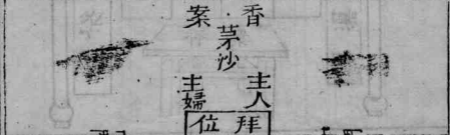 香案
茅沙
主人
主婦
拜位